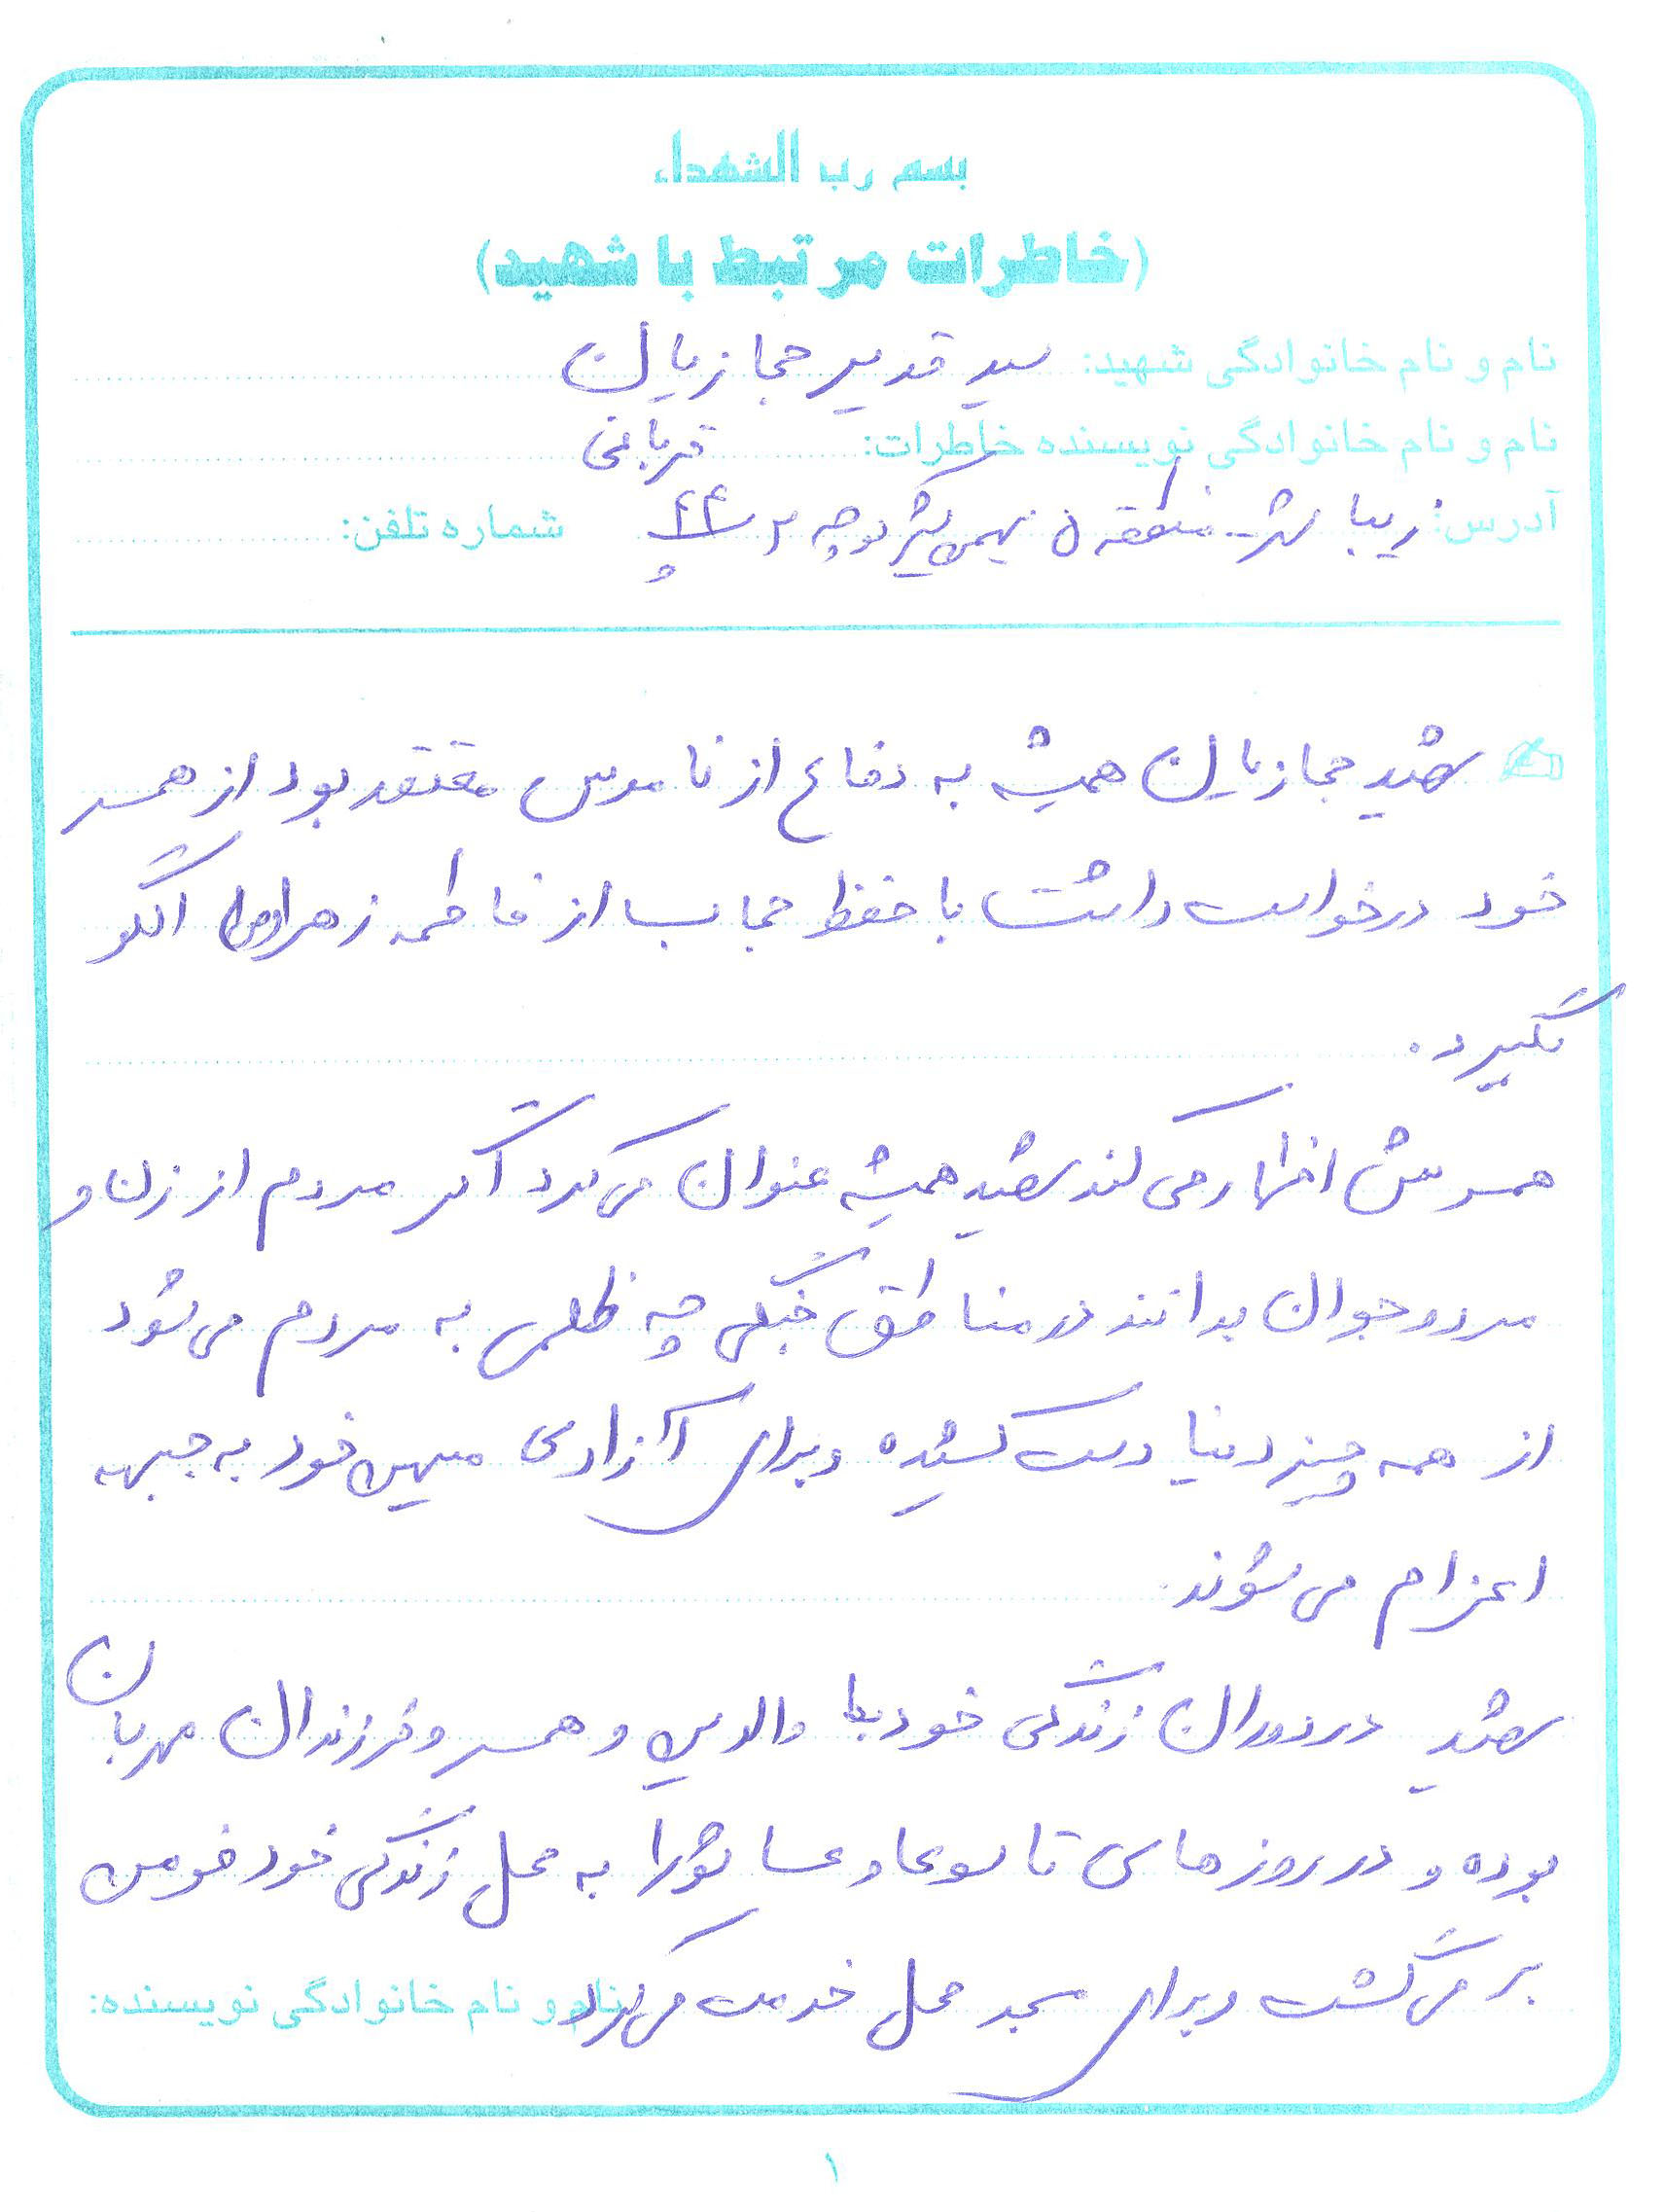 بسم رب الشهداء
(خاطرات مرتبط با شهید)
نام و نام خانوادگی شهید: سید قدیر حجازیان
نام و نام خانوادگی نویسنده خاطرات: قربانی
آدرس: زیبا شهر - منطقه ۵ بهمن شیر کوچه ۲ پ ۴۴ شماره تلفن:
شهید حجازیان همیشه به دفاع از ناموس معتقد بود از همسر
خود درخواست داشت با حفظ حجاب از فاطمه زهرا (س) الگو
بگیرد.
همسرش اظهار می کند شهید همیشه عنوان می کرد اگر مردم از زن و
مرد و جوان بدانند در مناطق جنگی چه ظلمی به مردم می شود
از همه چیز دنیا دست کشیده و برای آزادی میهن خود به جبهه
اعزام می شوند.
شهید در دوران زندگی خود با والدین و همسر و فرزندان مهربان
بوده و در روزهای تاسوعا و عاشورا به محل زندگی خود فومن
بر می گشت و برای مسجد محل خدمت می کرد
نام و نام خانوادگی نویسنده:
۱